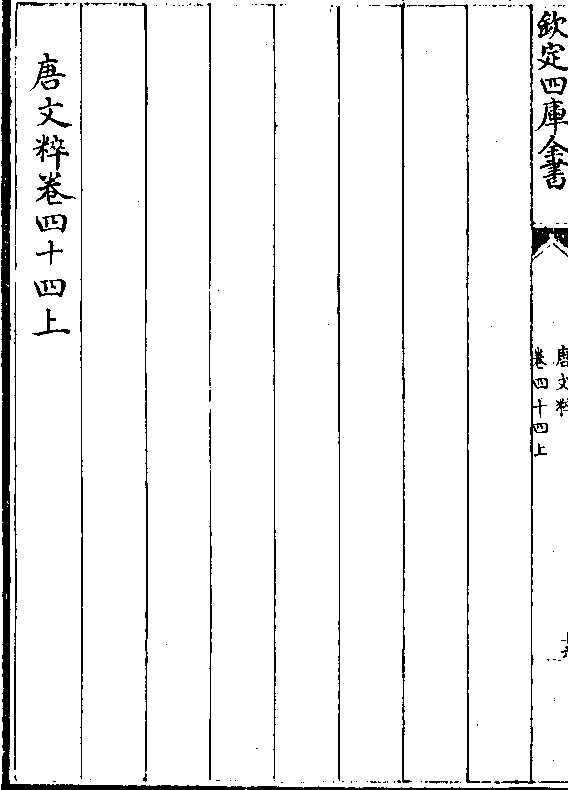 欽定四庫全書
唐文粹
卷四十四上
唐文粹卷四十四上